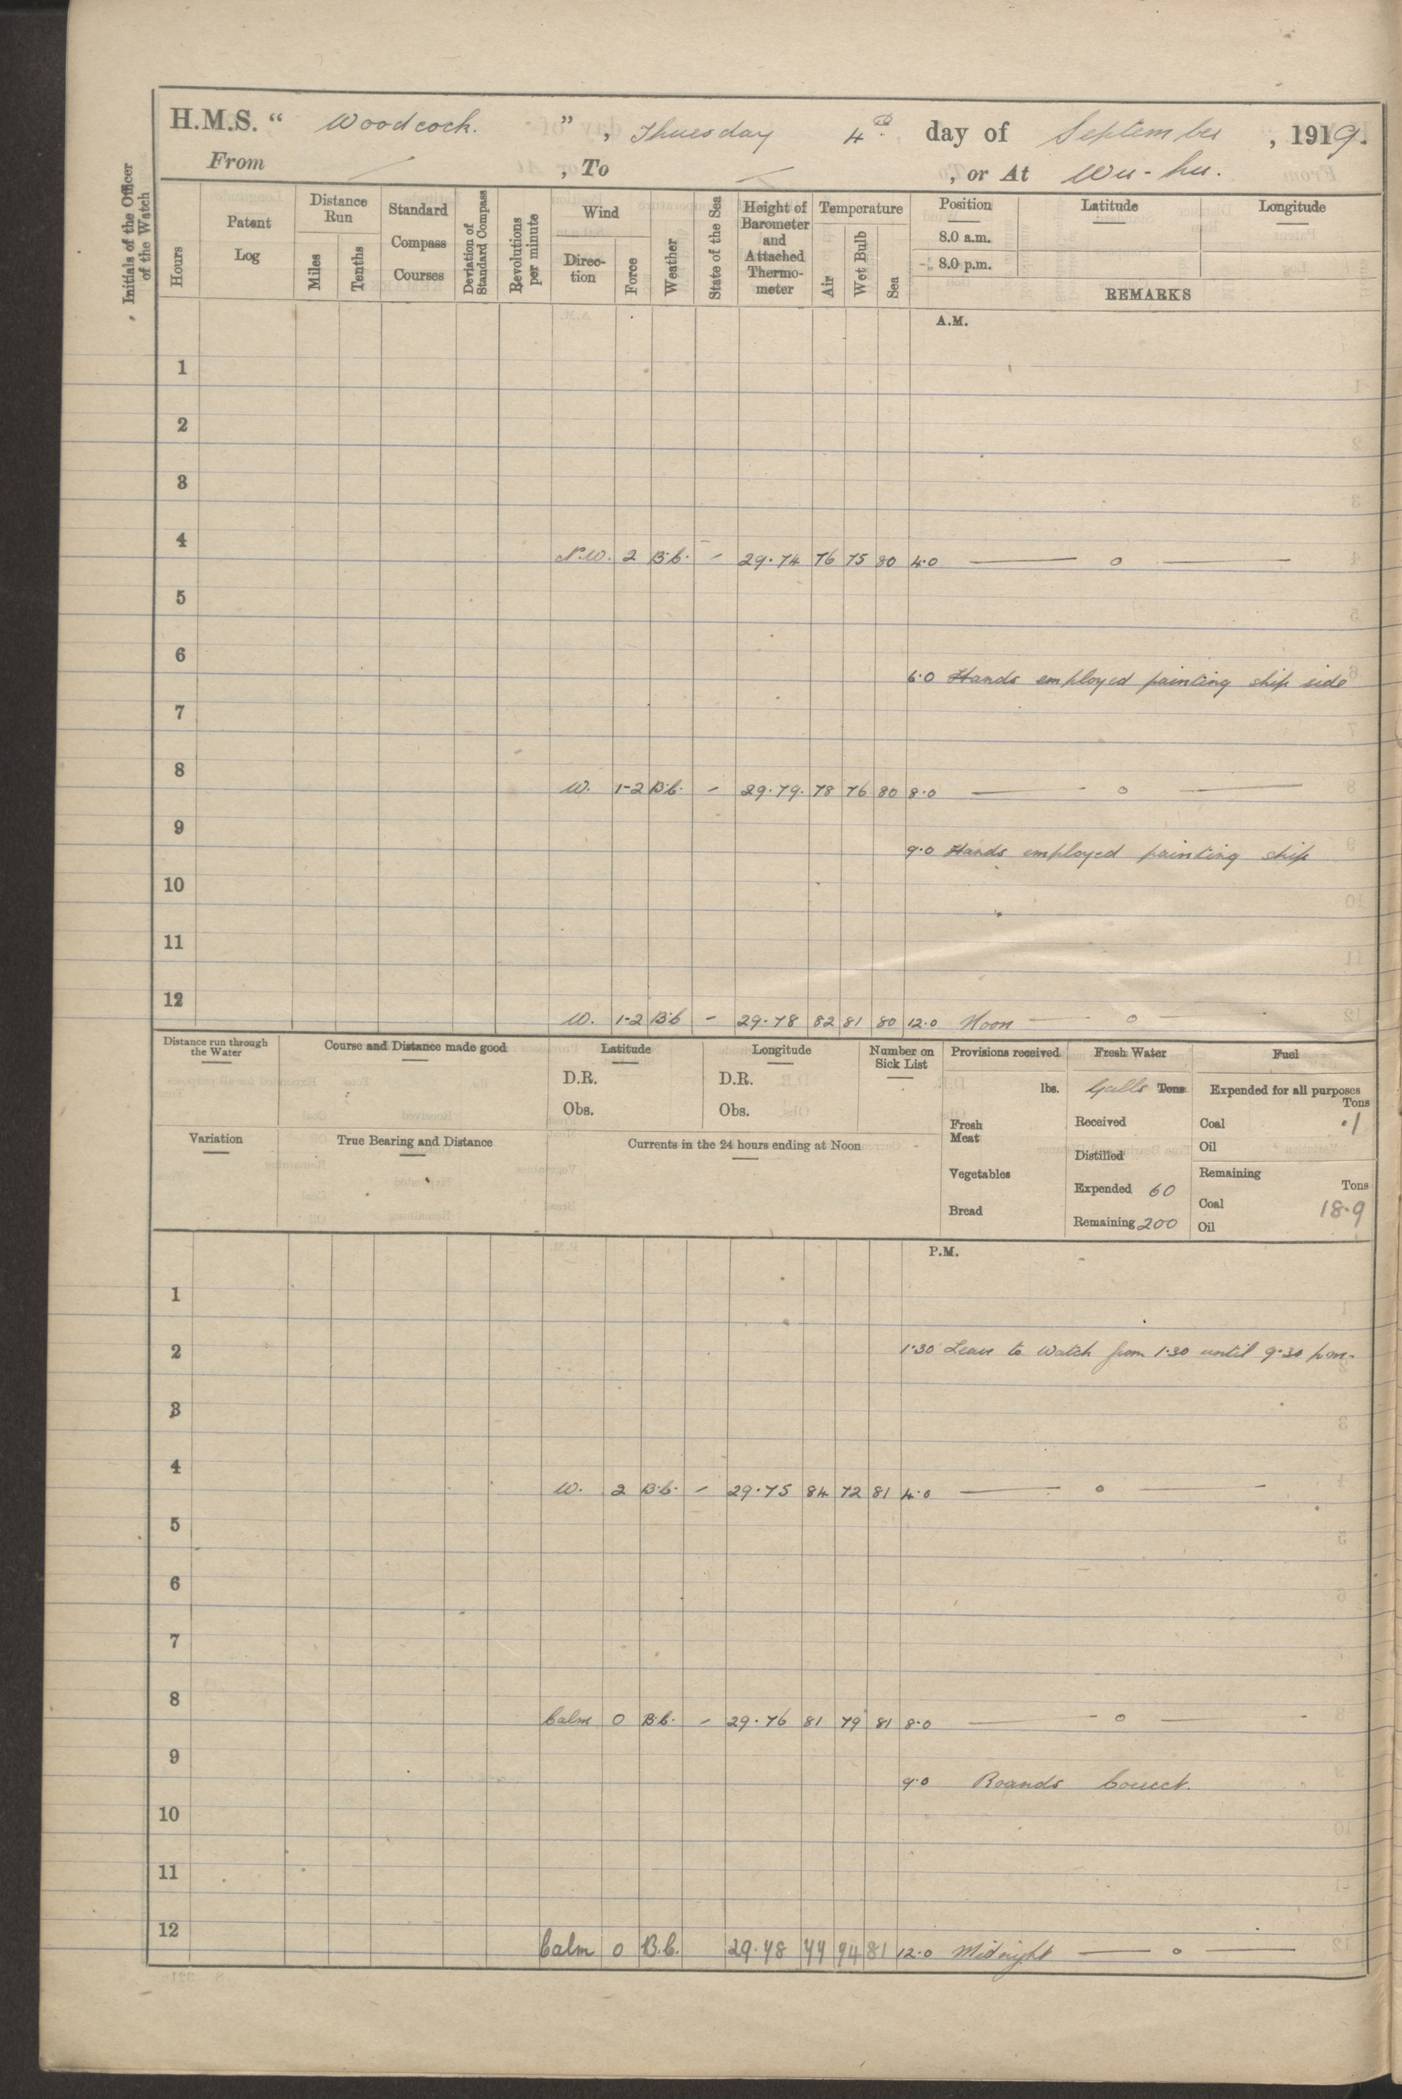 H.M.S. “ Woodcock. ” , Thursday 4th day of September , 1919.
From / , To — , or At Wu-hu.
Initials of the Officer of the Watch
Hours
Patent Log
Distance Run
Miles
Tenths
Standard Compass Courses
Deviation of Standard Compass
Revolutions per minute
Wind
Direction
Force
Weather
State of the Sea
Height of Barometer and Attached Thermometer
Temperature
Air
Wet Bulb
Sea
Position Latitude Longitude
8.0 a.m.
8.0 p.m.
REMARKS
A.M.
1
2
3
4 N.W. 2 B.b. - 29.74 76 75 80 4.0 — o —
5
6
6.0 Hands employed painting ship side
7
8 W. 1-2 B.b. - 29.79. 78 76 80 8.0 — o —
9
9.0 Hands employed painting ship
10
11
12 W. 1-2 B.b - 29.78 82 81 80 12.0 Noon — o —
Distance run through the Water
Course and Distance made good
Latitude
D.R.
Obs.
Longitude
D.R.
Obs.
Number on Sick List
Provisions received
lbs.
Fresh Meat
Vegetables
Bread
Fresh Water
Galls Tons
Received
Distilled
Expended 60
Remaining 200
Fuel
Expended for all purposes
Tons
Coal .1
Oil
Remaining
Tons
Coal 18.9
Oil
Variation
True Bearing and Distance
Currents in the 24 hours ending at Noon
P.M.
1
2 1.30 Leave to Watch from 1.30 until 9.30 p.m.
3
4 W. 2 B.b. - 29.75 84 72 81 4.0 — o —
5
6
7
8 Calm 0 B.b. - 29.76 81 79 81 8.0 — o —
9
9.0 Rounds Correct.
10
11
12 Calm 0 B.C. 29.78 77 74 81 12.0 Midnight — o —